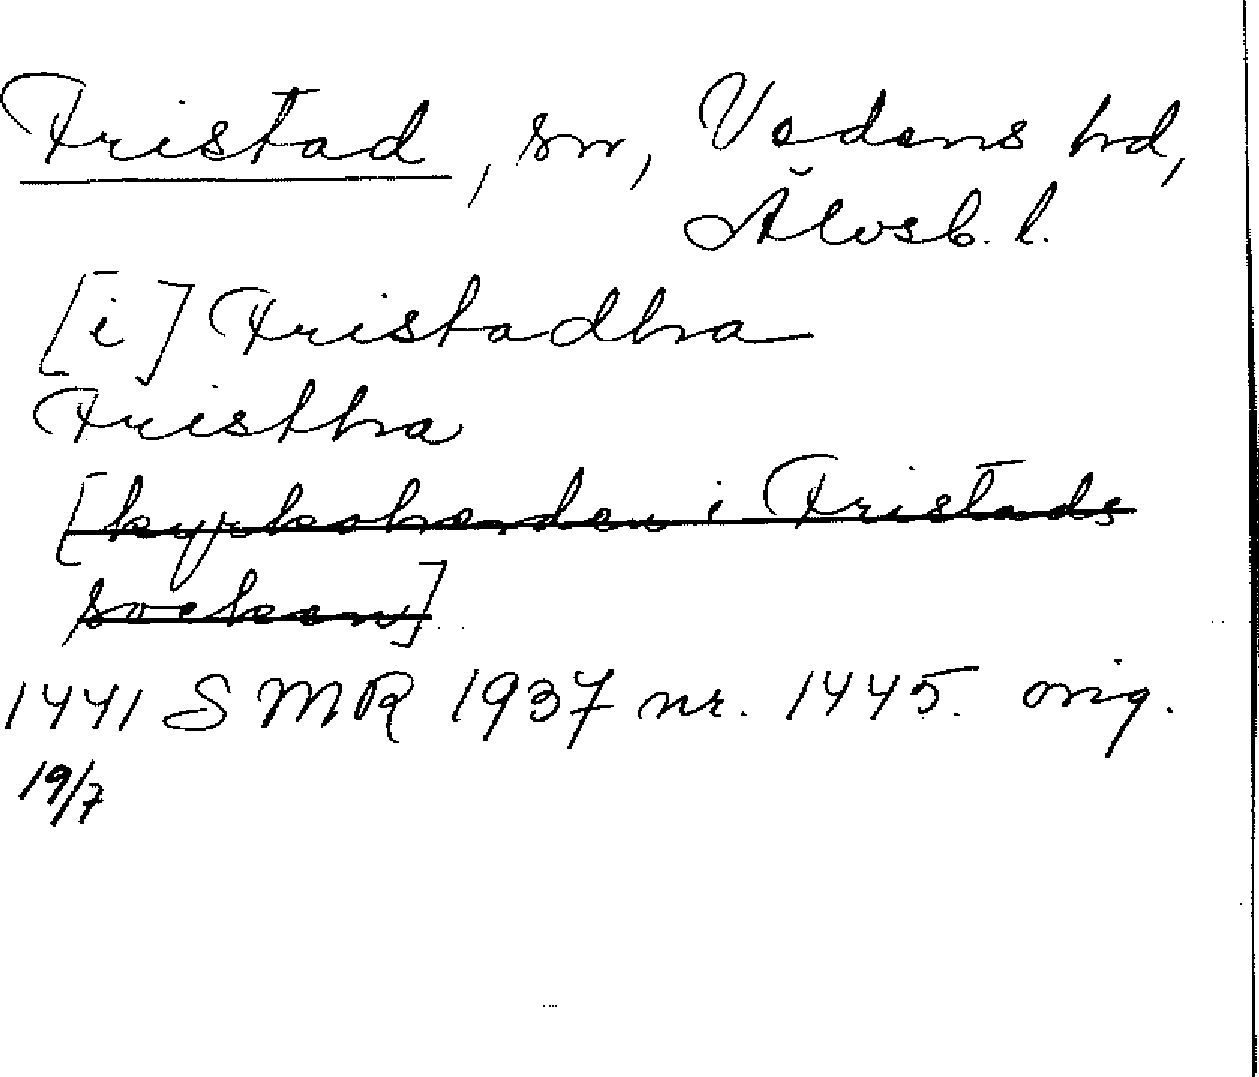 Fristad, sn, Vedens hd,
Älvsb. l.
[i] Fristadhra
Fristhra
[kyrkoherden i Fristads
socken]
1441 SMR 1937 nr. 1445. orig.
19/7